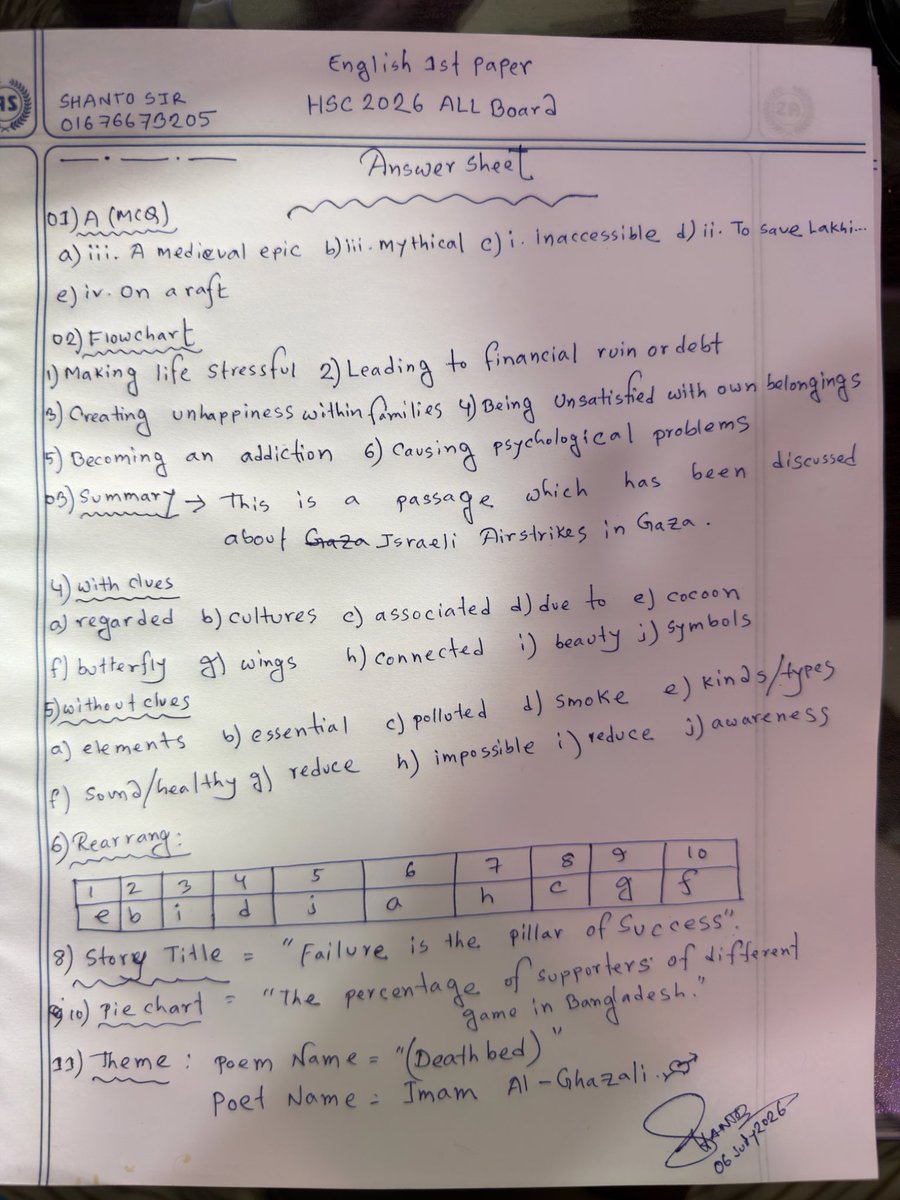 English 1st Paper
SHANTO SIR
HSC 2026 ALL Board
01676673205
Answer sheet
01) A (MCQ)
a) iii. A medieval epic b) iii. mythical c) i. Inaccessible d) ii. To save Lakhi...
e) iv. On a raft
02) Flowchart
1) Making life stressful 2) Leading to financial ruin or debt
3) Creating unhappiness within families 4) Being Unsatisfied with own belongings
5) Becoming an addiction 6) Causing psychological problems
03) Summary → This is a passage which has been discussed
about Gaza Israeli Airstrikes in Gaza.
4) with clues
a) regarded b) cultures c) associated d) due to e) cocoon
f) butterfly g) wings h) connected i) beauty j) symbols
5) without clues
a) elements b) essential c) polluted d) smoke e) kinds/types
f) Sound/healthy g) reduce h) impossible i) reduce j) awareness
6) Rearrang:
1 2 3 4 5 6 7 8 9 10
e b i d j a h c g f
8) Story Title = "Failure is the pillar of Success".
10) Pie chart = "The percentage of supporters of different
game in Bangladesh."
11) Theme : Poem Name = "(Death bed)"
Poet Name = Imam Al-Ghazali.
SHANTO
06 July 2026